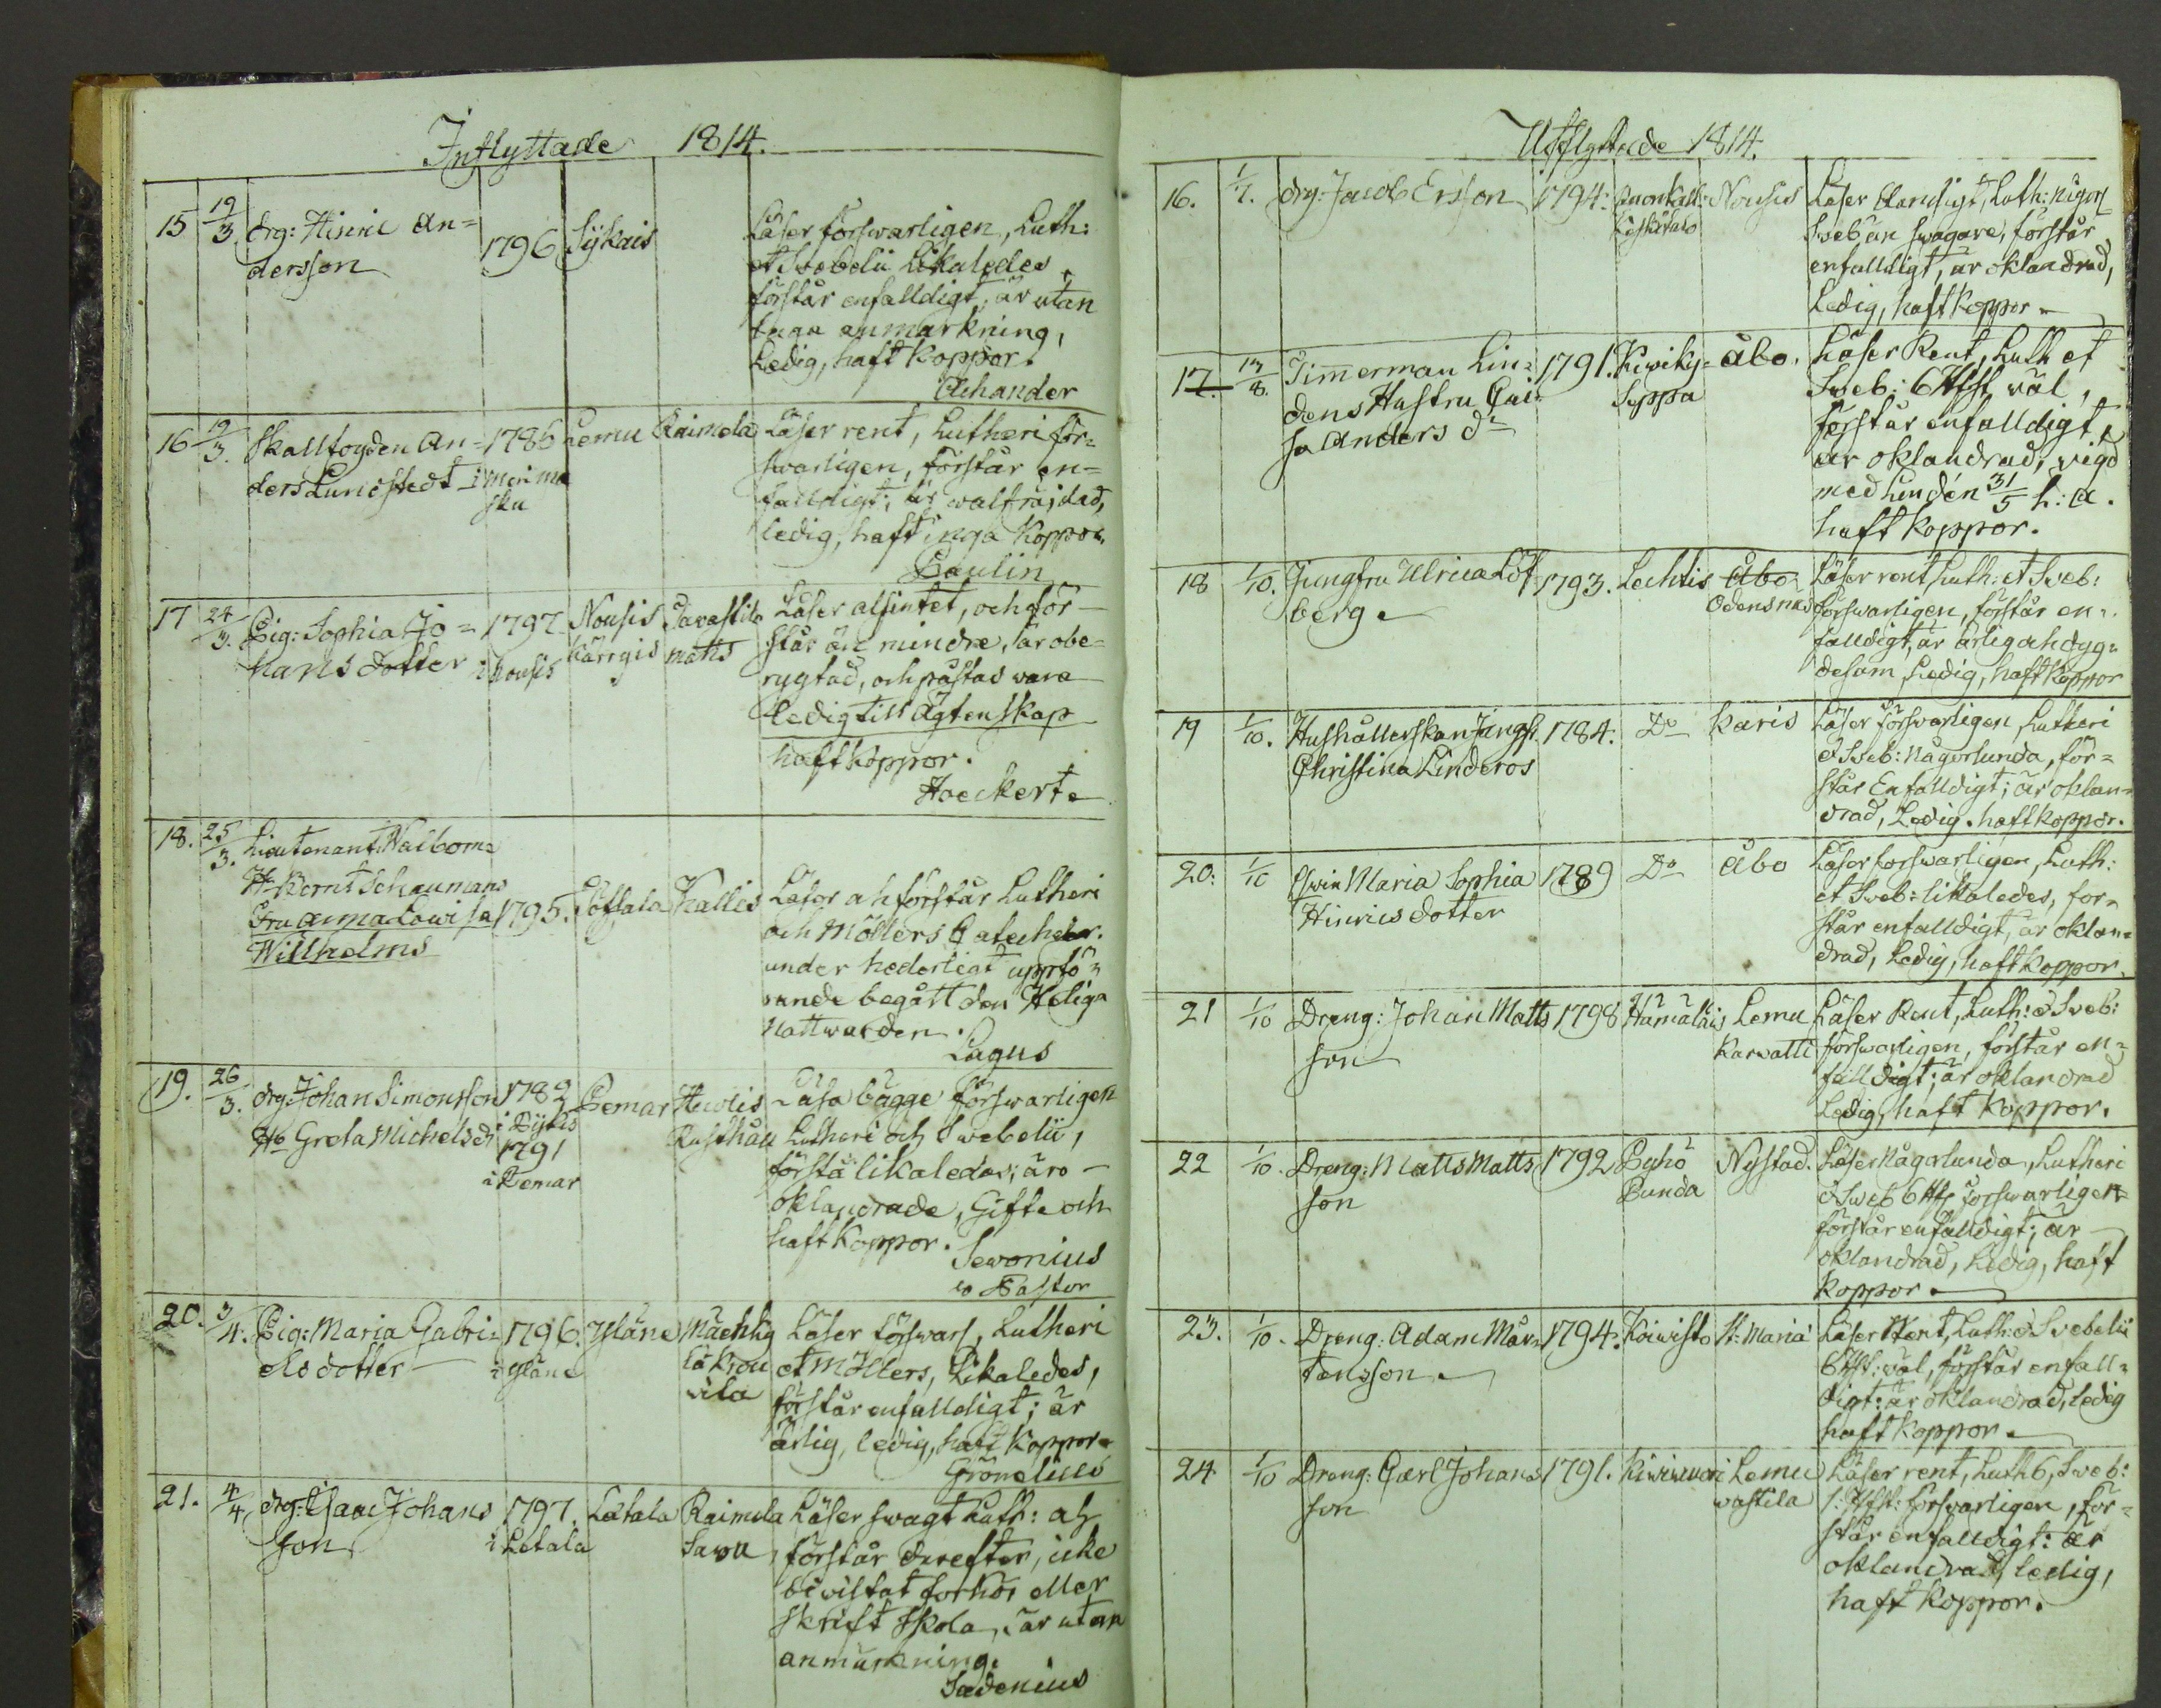 Inflyttade 1814.
15 19/3 drg: Hinric An=
dersson
1796 Sÿkais
Läser försvarligen, Luth:
et Svebelii Likaledes,
förstår enfalldigt, är utan
anmärkning,
Ledig, haft Koppor.
Achander
16 19/3. Skallfogden An=
ders Lundstedt
1786 i Merima
sku
Lemu Raimela
Läser rent, Lutheri för=
svarligen, förstår en=
falldigt; är walfräjdad,
ledig, haft inga Koppor.
Paulin
17 24/3. Pig: Sophia Jo=
hans dotter
1797 i Nousis
Nousis
Kärrgis
matts
Läser alsintet, och för
står än mindre, är obe=
rygtad, och påstås wara
ledig till Ägtenskap
haft koppor.
Hoeckert.
18. 25/3. Lieutenant Walbom
H. Berndt Schaumans
Fru Anna Lovisa
Willhelms
1795. Kallis
Läser och förstår Lutheri
och Möllers Catecheser.
under hederligt uppfö=
rande begått den Heliga
Nattwarden.
Lagus
19. 26/3. drg: Johan Simonsson
Ho Greta Michelsdr
1782
1791
i Pemar
Pemar
Rusthåll
Läsa bägge försvarligen
Lutheri och Swebelii,
förstå likaledes; äro
oklandrade, Gifte och
haft Koppor.
Sevonius
v Pastor
20. 3/4. Pig: Maria Gabri=
els dotter
1796.
i Yläne
Yläne
Läser försvarl, Lutheri
et Möllers, Likaledes,
förstår enfalldigt; är
ärlig, ledig, haft Koppor.
Grönelius
21. 4/4 drg: Isaac Johans
son
1797.
i Letala
Letala Raimela
Läser swagt Luth: och
förstår derefter, icke
bewistat förhör eller
Skrift Skola, är utan
anmärkning.
Sadenius
Utflyttade 1814.
16. 1/7. drg: Jacob Ersson 1794. Nousis
Läser Landligt, Luth: någorl
Sveb än swagare, förstår
enfalldigt, är oklandrad,
Ledig, haft Koppor.
17. 17/8. Timmerman Lin=
dens Hustru Cai
sa Anders dr
1791. Kiviky=
Seppä
Åbo.
Läser Rent, Luth et
Sveb: 6 Hfst väl,
förstår enfalldigt,
är oklandrad, vigd
med Lindén 31/5 h: a.
haft koppor.
18 1/10. Jungfru Ulrica Löf
berg.
1793. Lechtis Åbo
Odensnäs
Läser rent Luth: et Sveb:
försvarligen, förstår en=
falldigt, är ärlig och dyg=
desam, Ledig, haft Koppor
19 1/10. Hushållerskan Jungfr
Christina Linderos
1784. Do Karis
Läser försvarligen, Lutheri
et Sveb: någorlunda, för=
står Enfalldigt; är oklan=
drad, Ledig. haft koppor.
20: 1/10 Qwin Maria Sophia
Hinrics dotter
1789 Do Åbo
Läser försvarligen, Luth:
et Sveb: likaledes, för=
står enfalldigt, är oklan=
drad, Ledig, haft Koppor.
21 1/10 Dreng: Johan Matts
son
1798 Hämäläis Lemu
Karvatti
Läser Rent, Luth: & Sveb:
försvarligen, förstår en=
falldigt; är oklandrad
Ledig, haft Koppor.
22 1/10. Dreng: Matts Matts
son
1792 Pyhö
Bunda
Nystad.
Läser Någorlunda, Lutheri
& Sveb 6 Hfs försvarligen
förstår enfalldigt; är
oklandrad, Ledig, haft
Koppor
23. 1/10. Dreng: Adam Mår=
tensson.
1794. Koivisto St: Maria
Läser Rent, Luth: & Svebelii
6 Hfst: väl, förstår enfall=
digt: är oklandrad, ledig
haft koppor.
24. 1/10 Dreng: Carl Johans
son
1791. Kiwivuori Lemu
wastila
Läser rent, Luth 6, Sveb:
1. Hfst: försvarligen, för=
står enfalldigt: är
oklandrad, ledig,
haft Koppor.